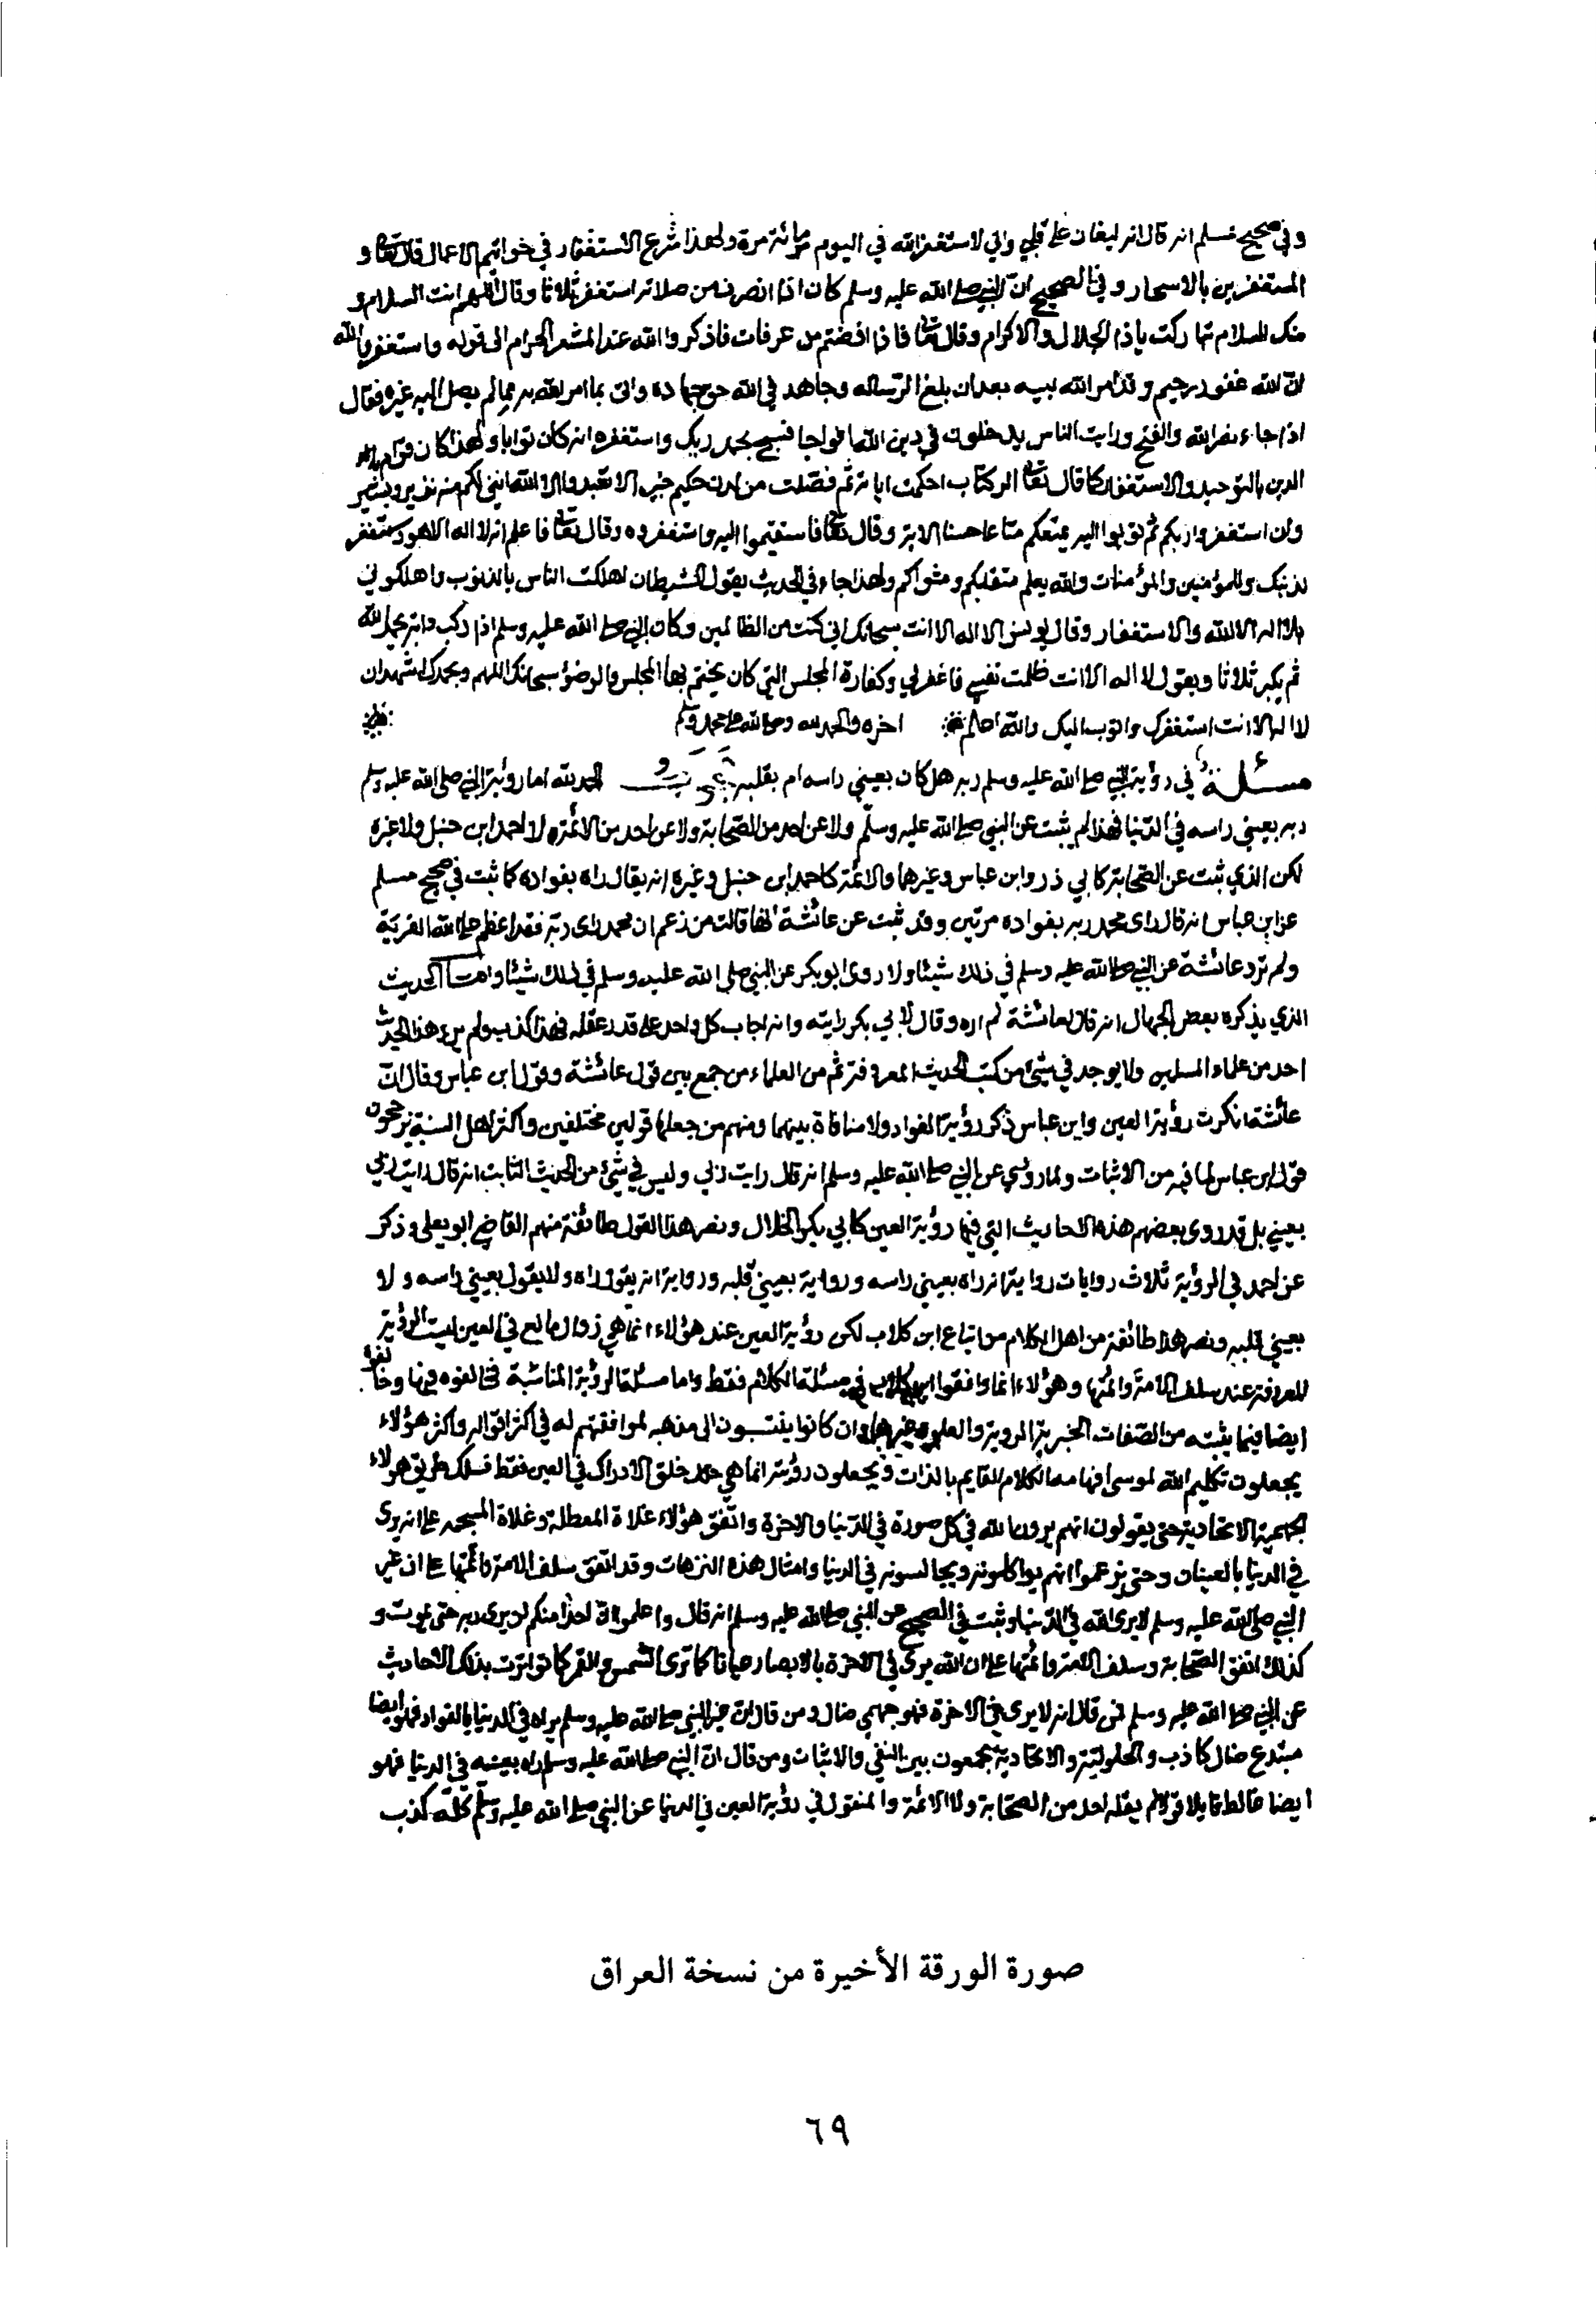 وفي صحيح مسلم انه قال انه ليغان على قلبي واني لاستغفر الله في اليوم مائة مرة ولهذا شرع الاستغفار في خواتيم الاعمال قال تعالى و
المستغفرين بالاسحار وفي الصحيح ان النبي صلى الله عليه وسلم كان اذا انصرف من صلاته استغفر ثلاثا وقال اللهم انت السلام و
منك السلام تباركت ياذا الجلال والاكرام وقال تعالى فاذا افضتم من عرفات فاذكروا الله عند المشعر الحرام الى قوله واستغفروا الله
ان الله غفور رحيم وقد امر الله نبيه بعد ان بلغ الرساله وجاهد في الله حق جهاده واتى بما امر الله به مما لم يصل اليه غيره فقال
اذا جاء نصر الله والفتح ورايت الناس يدخلون في دين الله افواجا فسبح بحمد ربك واستغفره انه كان توابا ولهذا كان قوام
الدين بالتوحيد والاستغفار كما قال تعالى الر كتاب احكمت اياته ثم فصلت من لدن حكيم خبير الا تعبدوا الا الله انني لكم منه نذير وبشير
وان استغفروا ربكم ثم توبوا اليه يمتعكم متاعا حسنا الاية وقال تعالى فاستقيموا اليه واستغفروه وقال تعالى فاعلم انه لا اله الا هو واستغفر
لذنبك وللمؤمنين والمؤمنات والله يعلم متقلبكم ومثواكم ولهذا جاء في الحديث يقول الشيطان اهلكت الناس بالذنوب واهلكوني
بلا اله الا الله والاستغفار وقال يونس لا اله الا انت سبحانك اني كنت من الظالمين وكان النبي صلى الله عليه وسلم اذا ركب دابته يحمد الله
ثم يكبر ثلاثا ويقول لا اله الا انت ظلمت نفسي فاغفر لي وكفارة المجلس التي كان يختم بها المجلس والوضؤ سبحانك اللهم وبحمدك اشهد ان
لا اله الا انت استغفرك واتوب اليك والله اعلم اخره والحمد لله وصلى الله على محمد وسلم
مسئلة في رؤية النبي صلى الله عليه وسلم ربه هل كان بعيني راسه ام بقلبه الحمد لله اما رؤية النبي صلى الله عليه وسلم
ربه بعيني راسه في الدنيا فهذا لم يثبت عن النبي صلى الله عليه وسلم ولا عن احد من الصحابة ولا عن احد من الائمة لا احمد ابن حنبل ولا غيره
لكن الذي ثبت عن الصحابة كابي ذر وابن عباس وغيرهما والائمة كاحمد ابن حنبل وغيره انه يقال راه بفواده كما ثبت في صحيح مسلم
عن ابن عباس انه قال راى محمد ربه بفواده مرتين وقد ثبت عن عائشة انها قالت من زعم ان محمد راى ربه فقد اعظم على الله الفرية
ولم ترو عائشة عن النبي صلى الله عليه وسلم في ذلك شيئا ولا روى ابو بكر عن النبي صلى الله عليه وسلم في ذلك شيئا واما الحديث
الذي يذكره بعض الجهال انه قال لعائشة لم اره وقال لابي بكر رايته وانه اجاب كل واحد على قدر عقله فهذا كذب ولم يرو هذا الحديث
احد من علماء المسلمين ولا يوجد في شيئ من كتب الحديث المعروفة ثم من العلماء من جمع بين قول عائشة وقول ابن عباس وقال ان
عائشة انكرت رؤية العين وابن عباس ذكر رؤية الفواد ولا منافاة بينهما ومنهم من جعلها قولين مختلفين واكثر اهل السنة يرجحون
قول ابن عباس لما فيه من الاثبات ولما روي عن النبي صلى الله عليه وسلم انه قال رايت ربي وليس في شيئ من الحديث الثابت انه قال رايت ربي
بعيني بل قد روى بعضهم هذه الاحاديث التي فيها رؤية العين كابي بكر الخلال ونصر هذا القول طائفة منهم القاضي ابو يعلى وذكر
عن احمد في الرؤية ثلاث روايات رواية انه راه بعيني راسه ورواية بعيني قلبه ورواية انه يقول راه ولا يقول بعيني راسه ولا
بعيني قلبه ونصر هذا طائفة من اهل الكلام من اتباع ابن كلاب لكن رؤية العين عند هؤلاء انما هي زوال مانع في العين ليست الرؤية
المعروفة عند سلف الامة وائمتها وهؤلاء انما وافقوا ابن كلاب في مسئلة الكلام فقط واما مسئلة الرؤية خالفوه فيها وخالفوه
ايضا فيما يثبته من الصفات الخبرية المروية والعلو وغيرها وان كانوا ينتسبون الى مذهبه لموافقتهم له في اكثر اقواله واكثر هؤلاء
يجعلون تكليم الله لموسى الكلام القايم بالذات ويجعلون رؤيته انما هي خلق الادراك في العين فقط فسلك طريق هولاء
الجهمية الاتحادية حتى يقولون انهم يرون الله في كل صورة في الدنيا والاخرة واتفق هؤلاء غلاة المعطلة وغلاة على انه يرى
في الدنيا بالعينان وحتى يزعموا انهم يواكلونه ويجالسونه في الدنيا وامثال هذه الترهات وقد اتفق سلف الامة وائمتها على ان غير
النبي صلى الله عليه وسلم لا يرى الله في الدنيا وثبت في الصحيح عن النبي صلى الله عليه وسلم انه قال واعلموا ان احدا منكم لن يرى ربه حتى يموت و
كذلك اتفق الصحابة وسلف الامة وائمتها على ان الله يرى في الاخرة بالابصار عيانا كما ترى الشمس والقمر كما تواترت بذلك الاحاديث
عن النبي صلى الله عليه وسلم فمن قال انه لا يرى في الاخرة فهو جهمي ضال ومن قال ان غير النبي صلى الله عليه وسلم يراه في الدنيا بالفواد فهو ايضا
مبتدع ضال كاذب والحلولية والاتحادية يجمعون بين النفي والاثبات ومن قال ان النبي صلى الله عليه وسلم راه بعينه في الدنيا فهو
ايضا غالط قايلا قولا لم يقله احد من الصحابة ولا الائمة والمنقول في رؤية العين في الدنيا عن النبي صلى الله عليه وسلم كله كذب
صورة الورقة الأخيرة من نسخة العراق
٦٩